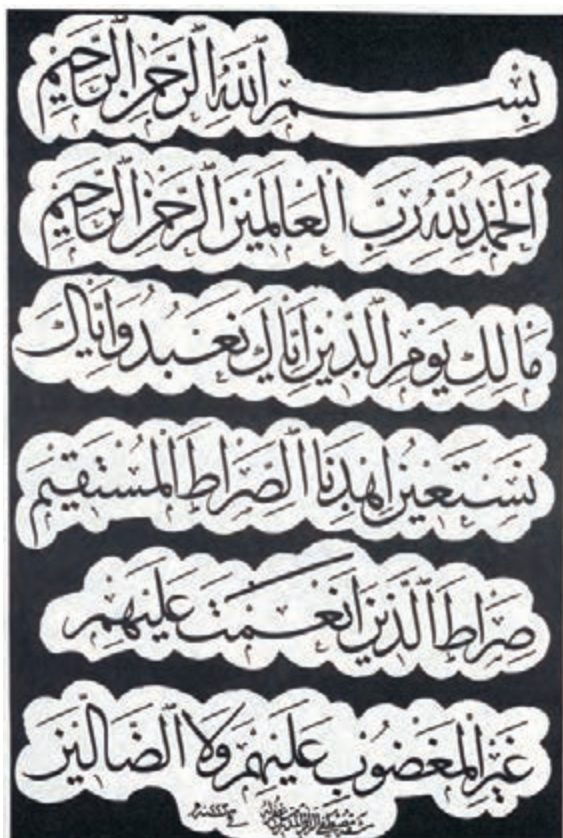 بِسْمِ اللَّهِ الرَّحْمٰنِ الرَّحِيمِ
اَلْحَمْدُ لِلَّهِ رَبِّ الْعَالَمِينَ الرَّحْمٰنِ الرَّحِيمِ
مَالِكِ يَوْمِ الدِّينِ اِيَّاكَ نَعْبُدُ وَاِيَّاكَ
نَسْتَعِينُ اِهْدِنَا الصِّرَاطَ الْمُسْتَقِيمَ
صِرَاطَ الَّذِينَ اَنْعَمْتَ عَلَيْهِمْ
غَيْرِ الْمَغْضُوبِ عَلَيْهِمْ وَلَا الضَّالِّينَ